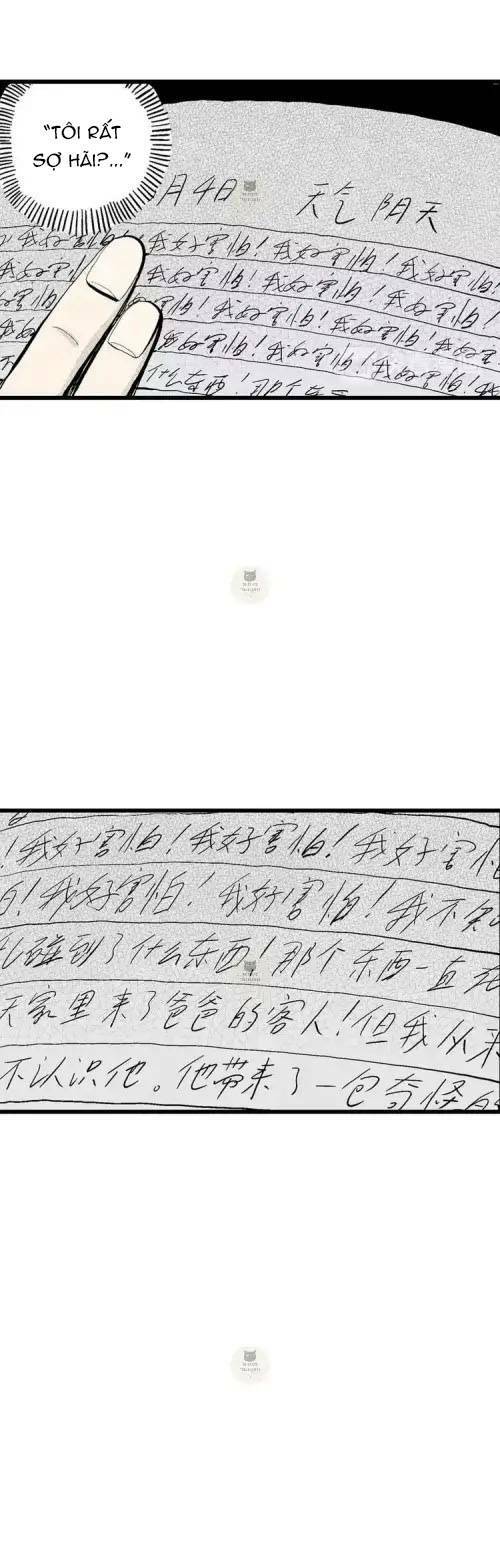 “TÔI RẤT
SỢ HÃI?...”
月4日 天气 阴天
! 我好害怕! 我好害怕! 我好害怕!
我好害怕! 我好害怕! 我好害怕!
害怕! 我好害怕! 我好害怕! 我好害怕!
我好害怕! 我好害怕! 我好害怕!
什么东西! 那个东西
! 我好害怕! 我好害怕! 我好害
怕! 我好害怕! 我好害怕! 我不知
碰到了什么东西! 那个东西一直在
天家里来了爸爸的客人! 但我从来
不认识他。他带来了一包奇怪的